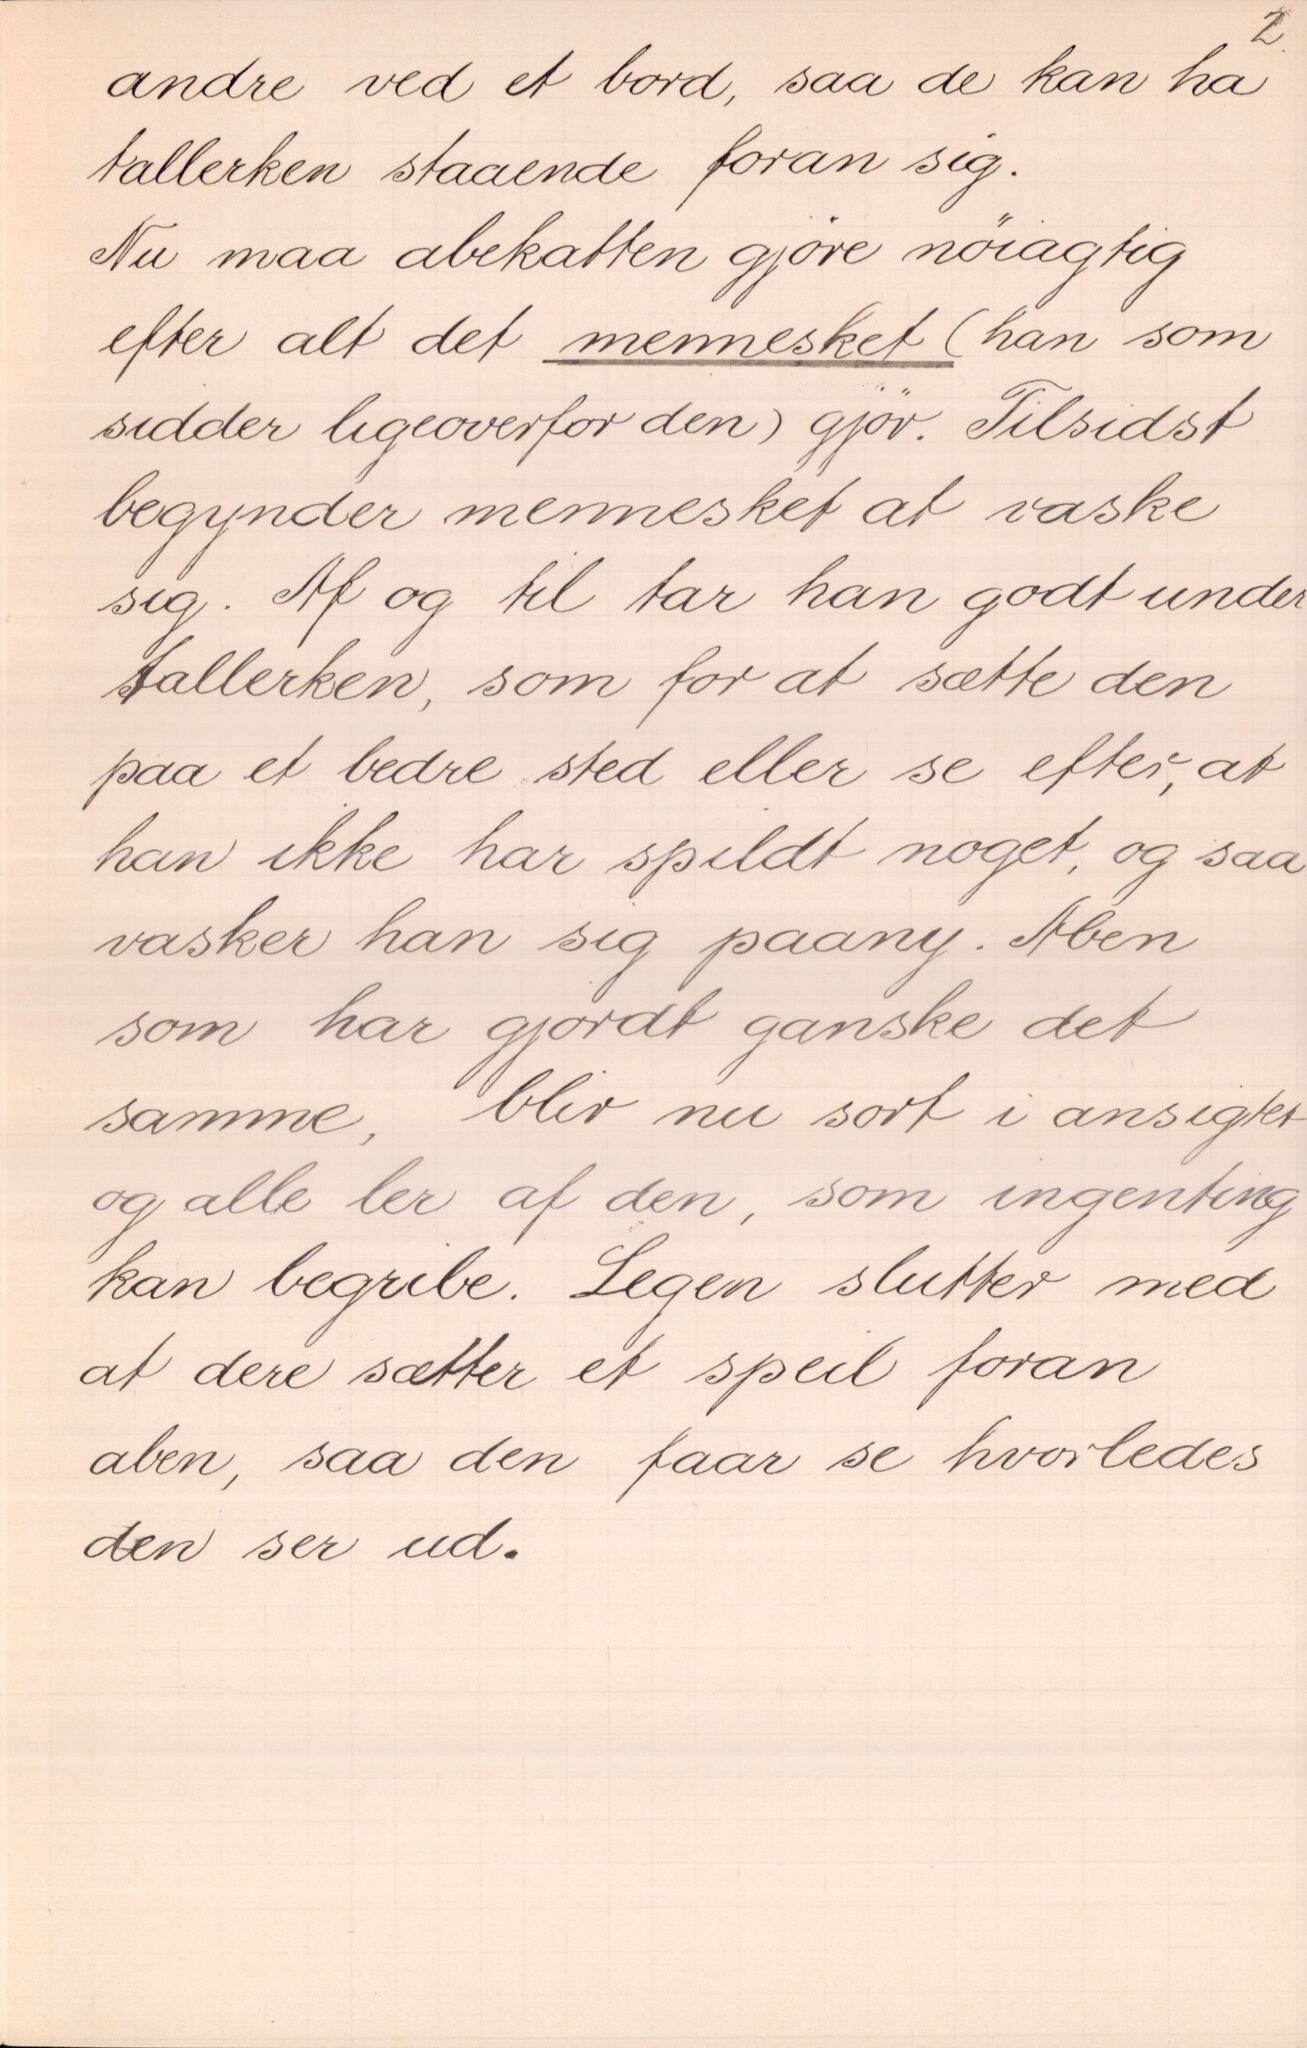 2.
andre ved et bord, saa de kan ha
tallerken staaende foran sig.
Nu maa abekatten gjöre nöiagtig
efter alt det mennesket (han som
sidder ligeoverfor den) gjör. Tilsidst
begynder mennesket at vaske
sig. Af og til tar han godt under
tallerken, som for at sætte den
paa et bedre sted eller se efter, at
han ikke har spildt noget, og saa
vasker han sig paany. Aben
som har gjordt ganske det
samme, blir nu sort i ansigtet
og alle ler af den, som ingenting
kan begribe. Legen slutter med
at dere sætter et speil foran
aben, saa den faar se hvorledes
den ser ud.